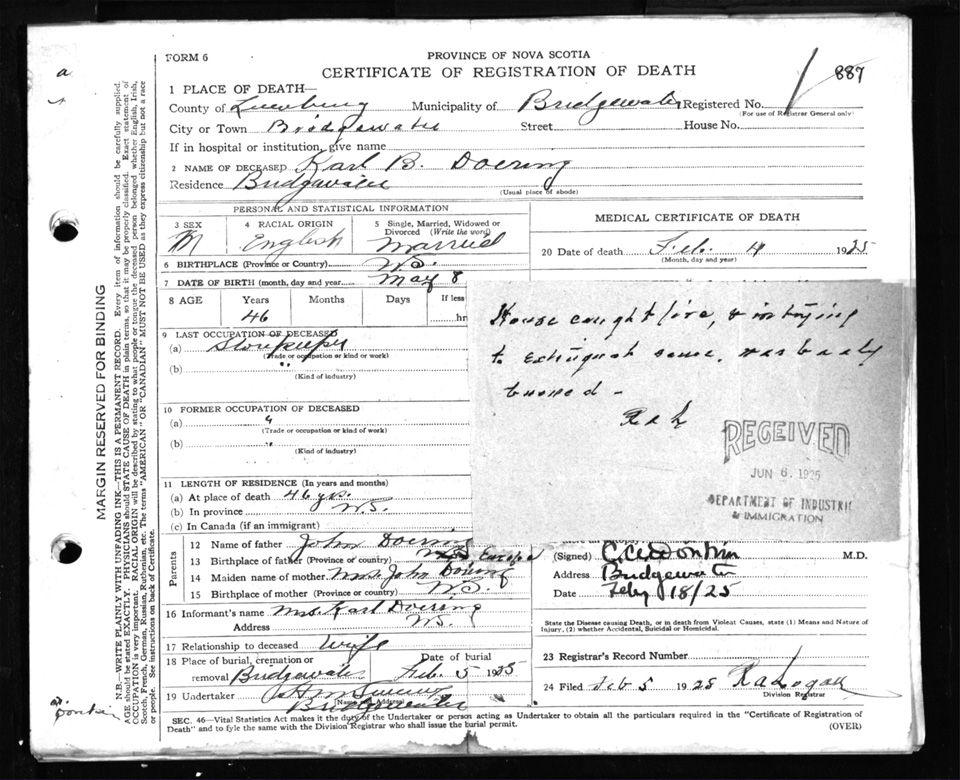 FORM 6
PROVINCE OF NOVA SCOTIA
CERTIFICATE OF REGISTRATION OF DEATH
887
1 PLACE OF DEATH—
County of Lunenburg Municipality of Bridgewater Registered No.
(For use of Registrar General only)
City or Town Bridgewater Street House No.
If in hospital or institution, give name
2 NAME OF DECEASED Karl B. Doering
Residence Bridgewater
(Usual place of abode)
PERSONAL AND STATISTICAL INFORMATION
3 SEX 4 RACIAL ORIGIN 5 Single, Married, Widowed or Divorced (Write the word)
M English Married
6 BIRTHPLACE (Province or Country) N.S.
7 DATE OF BIRTH (month, day and year) May 8
8 AGE Years Months Days If less
46 hr
9 LAST OCCUPATION OF DECEASED
(a) Storekeeper
(Trade or occupation or kind of work)
(b) "
(Kind of industry)
10 FORMER OCCUPATION OF DECEASED
(a)
(Trade or occupation or kind of work)
(b) "
(Kind of industry)
11 LENGTH OF RESIDENCE (In years and months)
(a) At place of death 46 yrs.
(b) In province N.S.
(c) In Canada (if an immigrant)
Parents
12 Name of father John Doering
13 Birthplace of father (Province or country) Europe
14 Maiden name of mother Mrs John Doering
15 Birthplace of mother (Province or country) N.S.
16 Informant's name Mrs. Karl Doering
Address N.S.
17 Relationship to deceased Wife
18 Place of burial, cremation or removal Bridgewater Date of burial Feb. 5 1925
19 Undertaker
(Name and Address)
Bridgewater
MEDICAL CERTIFICATE OF DEATH
20 Date of death Feb. 4 1925
(Month, day and year)
House caught fire, & in trying
to extinguish same, was badly
burned -
RECEIVED
JUN 6. 1925
DEPARTMENT OF INDUSTRI
& IMMIGRATION
(Signed) M.D.
Address Bridgewater
Date Feby 18/25
State the Disease causing Death, or in death from Violent Causes, state (1) Means and Nature of
Injury, (2) whether Accidental, Suicidal or Homicidal.
23 Registrar's Record Number
24 Filed Feb 5 1925 R A Logan
Division Registrar
SEC. 46—Vital Statistics Act makes it the duty of the Undertaker or person acting as Undertaker to obtain all the particulars required in the "Certificate of Registration of
Death" and to fyle the same with the Division Registrar who shall issue the burial permit.
(OVER)
MARGIN RESERVED FOR BINDING
N.B.—WRITE PLAINLY WITH UNFADING INK—THIS IS A PERMANENT RECORD. Every item of information should be carefully supplied.
AGE should be stated EXACTLY. PHYSICIANS should STATE CAUSE OF DEATH in plain terms, so that it may be properly classified. Exact statement of
OCCUPATION is very important. RACIAL ORIGIN will be described by stating to what people or tongue the deceased person belonged whether English, Irish,
Scotch, French, German, Russian, Ruthenian, etc. The terms "AMERICAN" OR "CANADIAN" MUST NOT BE USED as they express citizenship but not a race
or people. See instructions on back of Certificate.